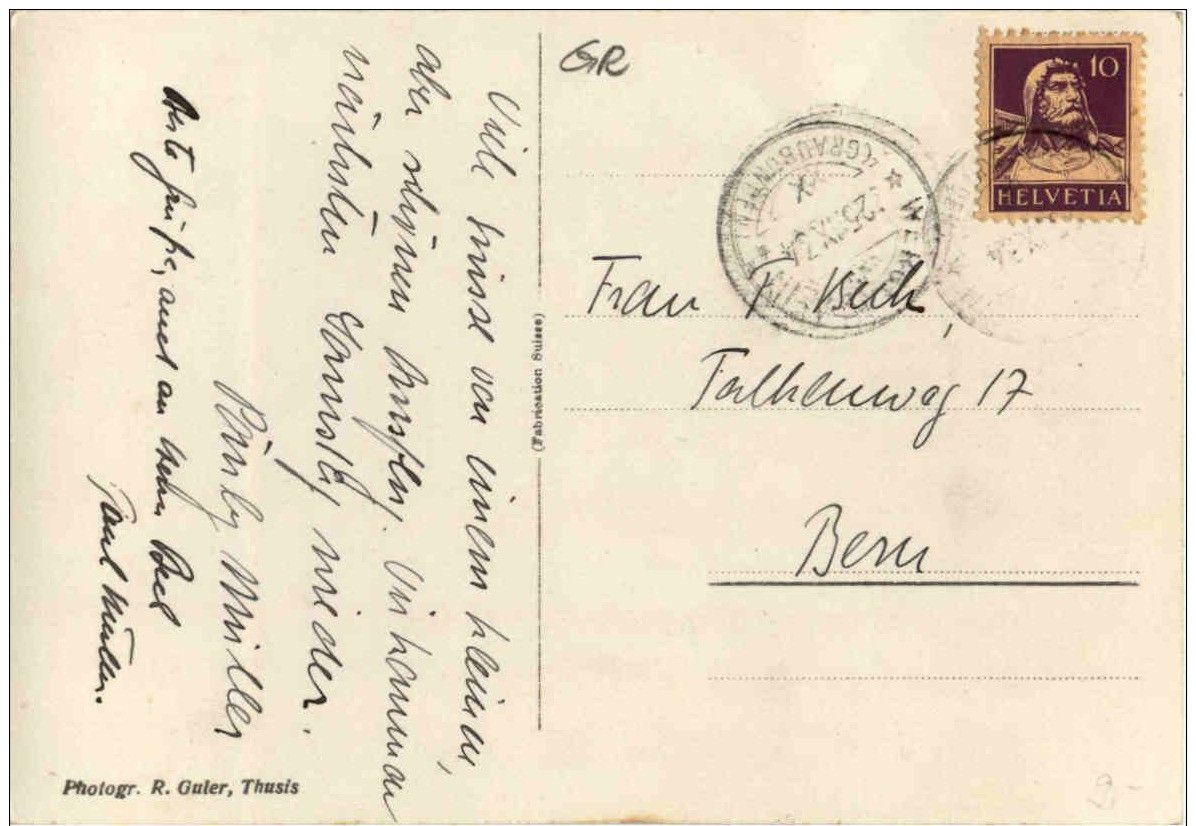 Viele Grüsse von einem kleinen,
aber schönen Ausflug. Wir kommen
nächsten Samstag wieder.
Müller
Beste Grüsse, auch an Herrn Beck
Paul Müller.
Photogr. R. Guler, Thusis
(Fabrication Suisse)
GR
10
HELVETIA
(GRAUBÜNDEN)
Frau F. Beck,
Falkenweg 17
Bern